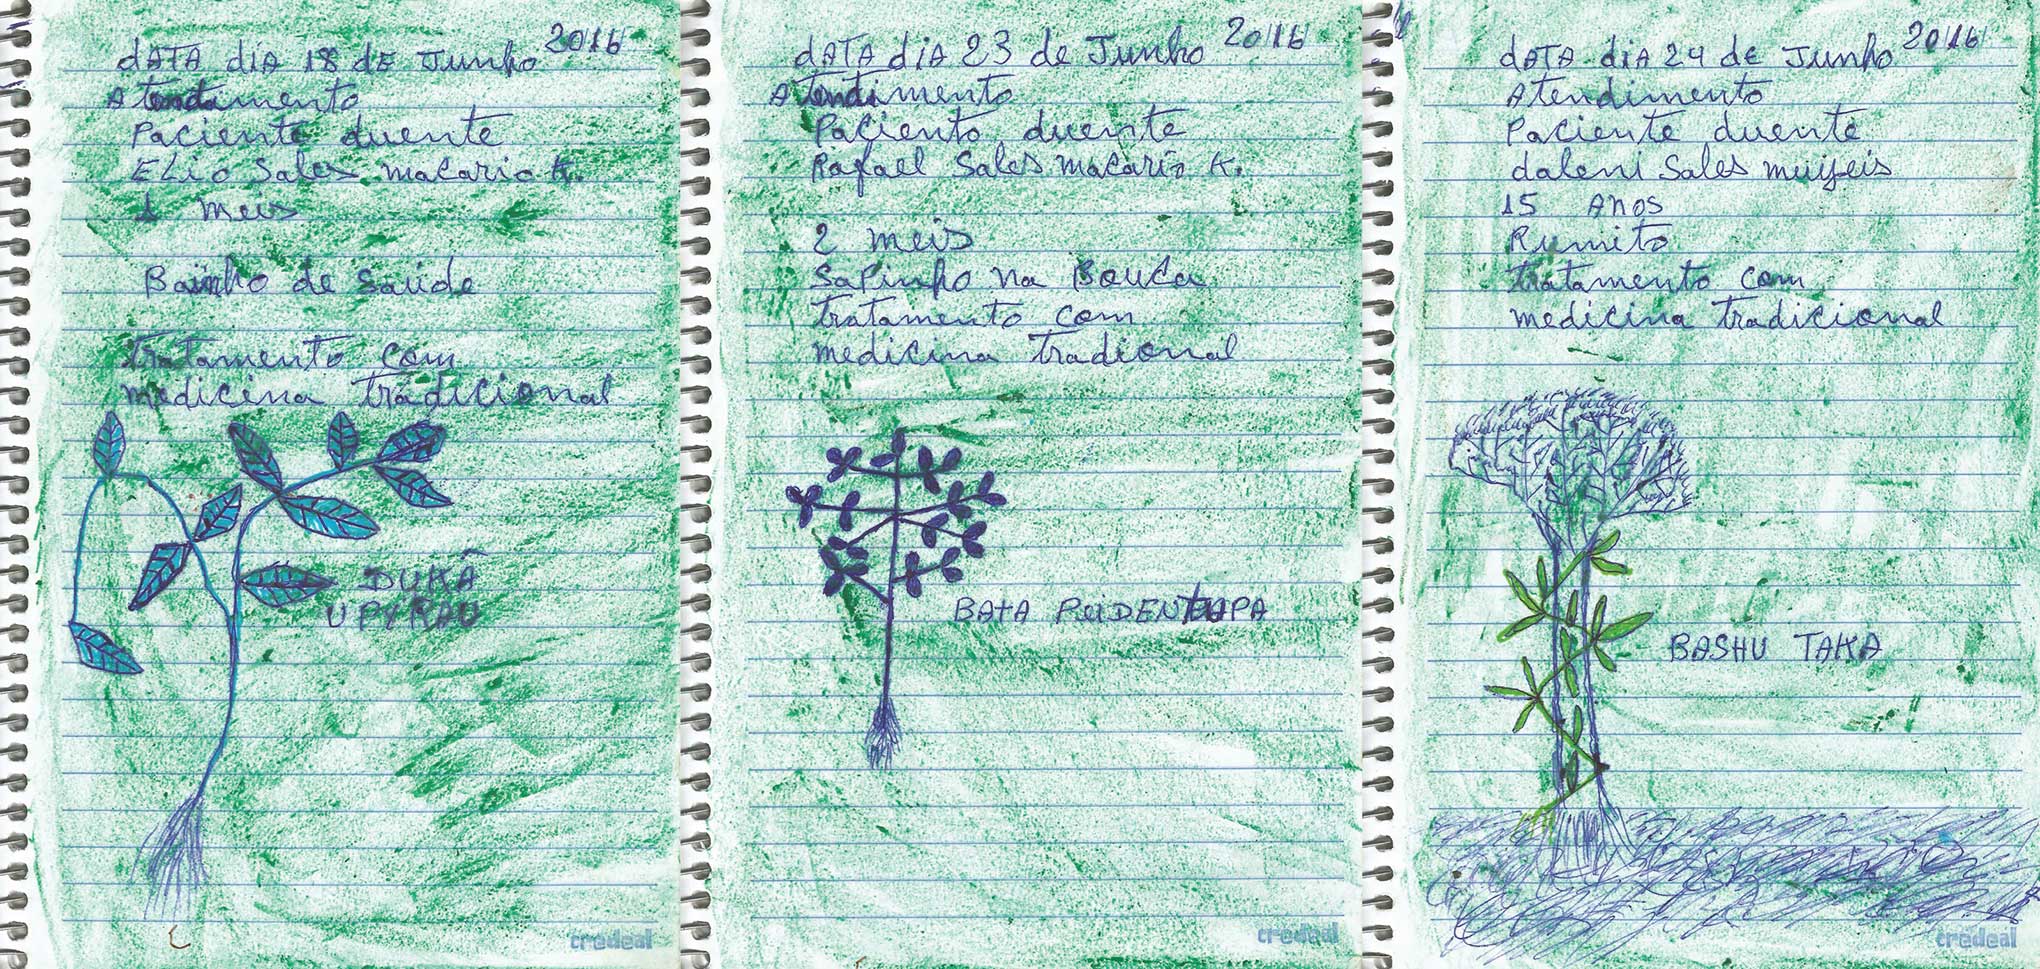 dATA dia 18 dE Junho 2016
Paciente duente
Elio Sales macario K.
1 meis
Bainho de Saúde
tratamento com
medicina tradicional
DUKÃ
UPYRAU
credeal
dATA diA 23 de Junho 2016
Atendimento
Paciento duente
Rafael Sales macario K.
2 meis
Sapinho na Bouca
tratamento com
medicina tradional
BATA
credeal
dATA diA 24 de Junho 2016
Atendimento
Paciente duente
daleni Sales
15 Anos
Rumito
tratamento com
medicina tradicional
BASHU TAKA
credeal